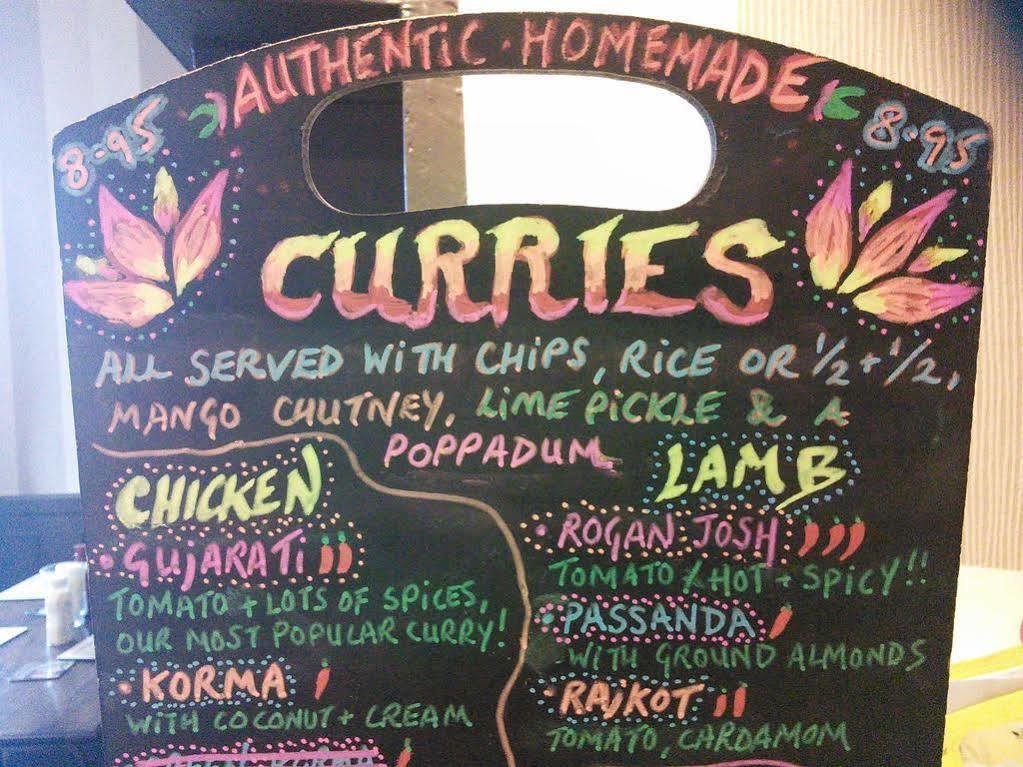 AUTHENTIC · HOMEMADE
8·95
8·95
CURRIES
ALL SERVED WITH CHIPS, RICE OR 1/2 + 1/2,
MANGO CHUTNEY, LIME PICKLE & A
POPPADUM
CHICKEN
· GUJARATI
TOMATO + LOTS OF SPICES,
OUR MOST POPULAR CURRY!
· KORMA
WITH COCONUT + CREAM
KORMA
LAMB
· ROGAN JOSH
TOMATO / HOT + SPICY!!
· PASSANDA
WITH GROUND ALMONDS
· RAJKOT
TOMATO, CARDAMOM